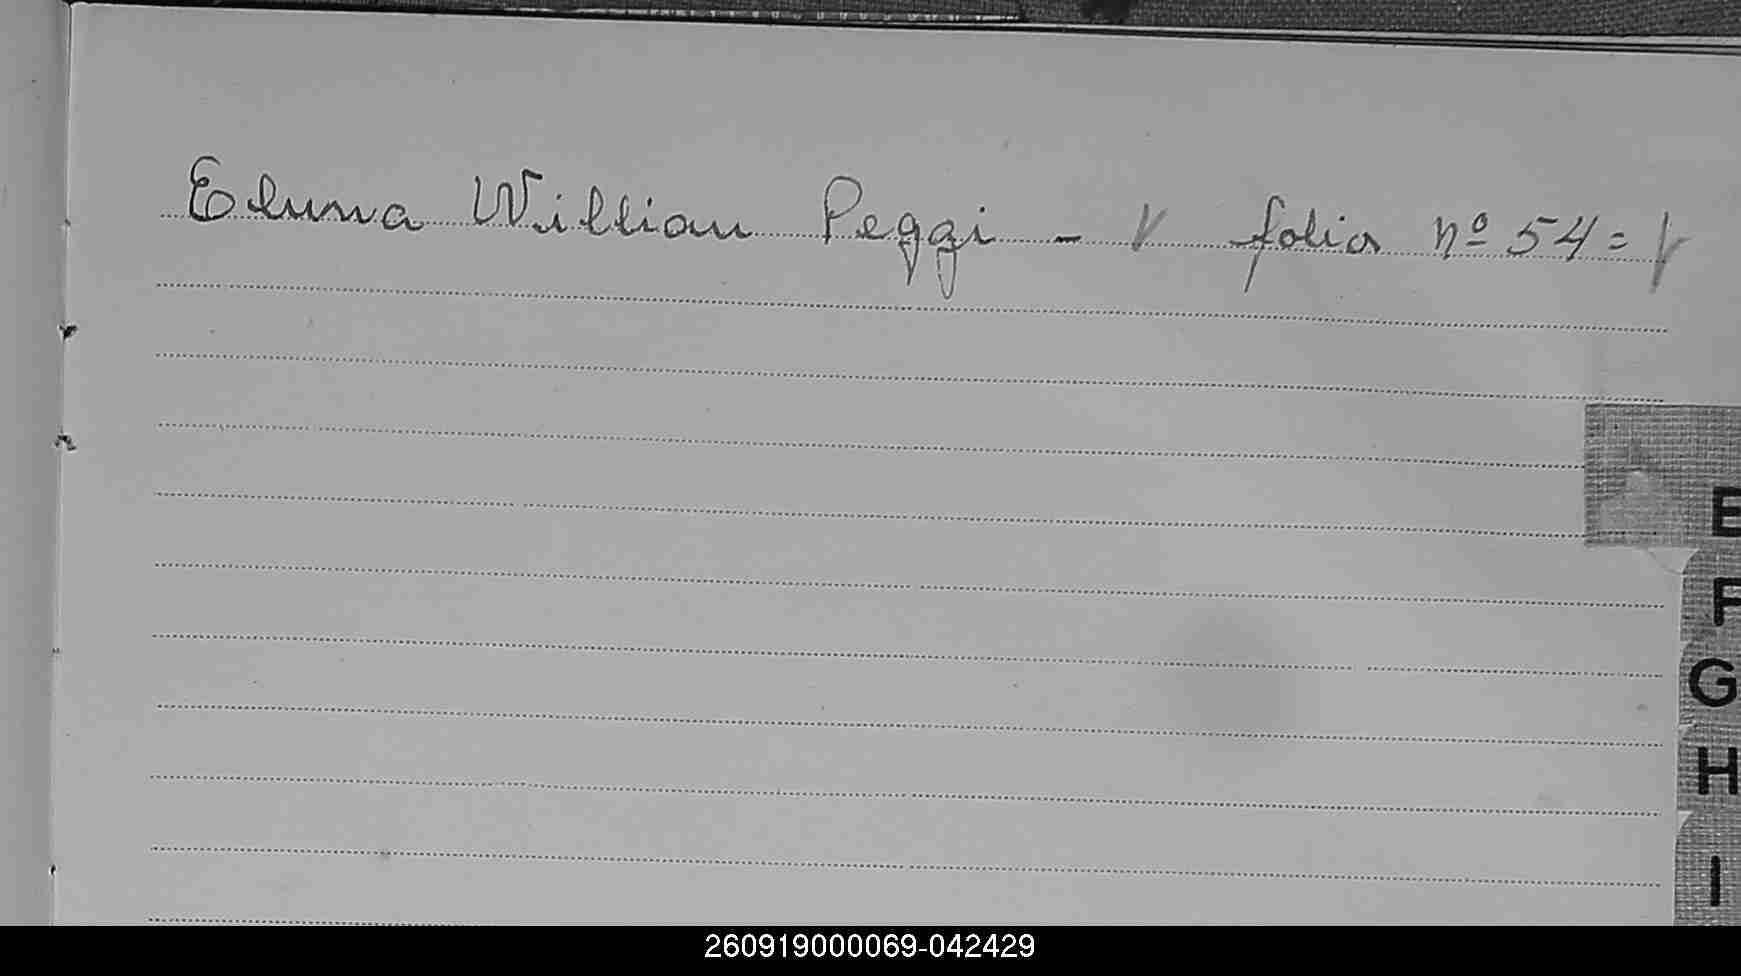 Eluna Willian Peggi - V folio nº 54 = V
E
F
G
H
I
260919000069-042429